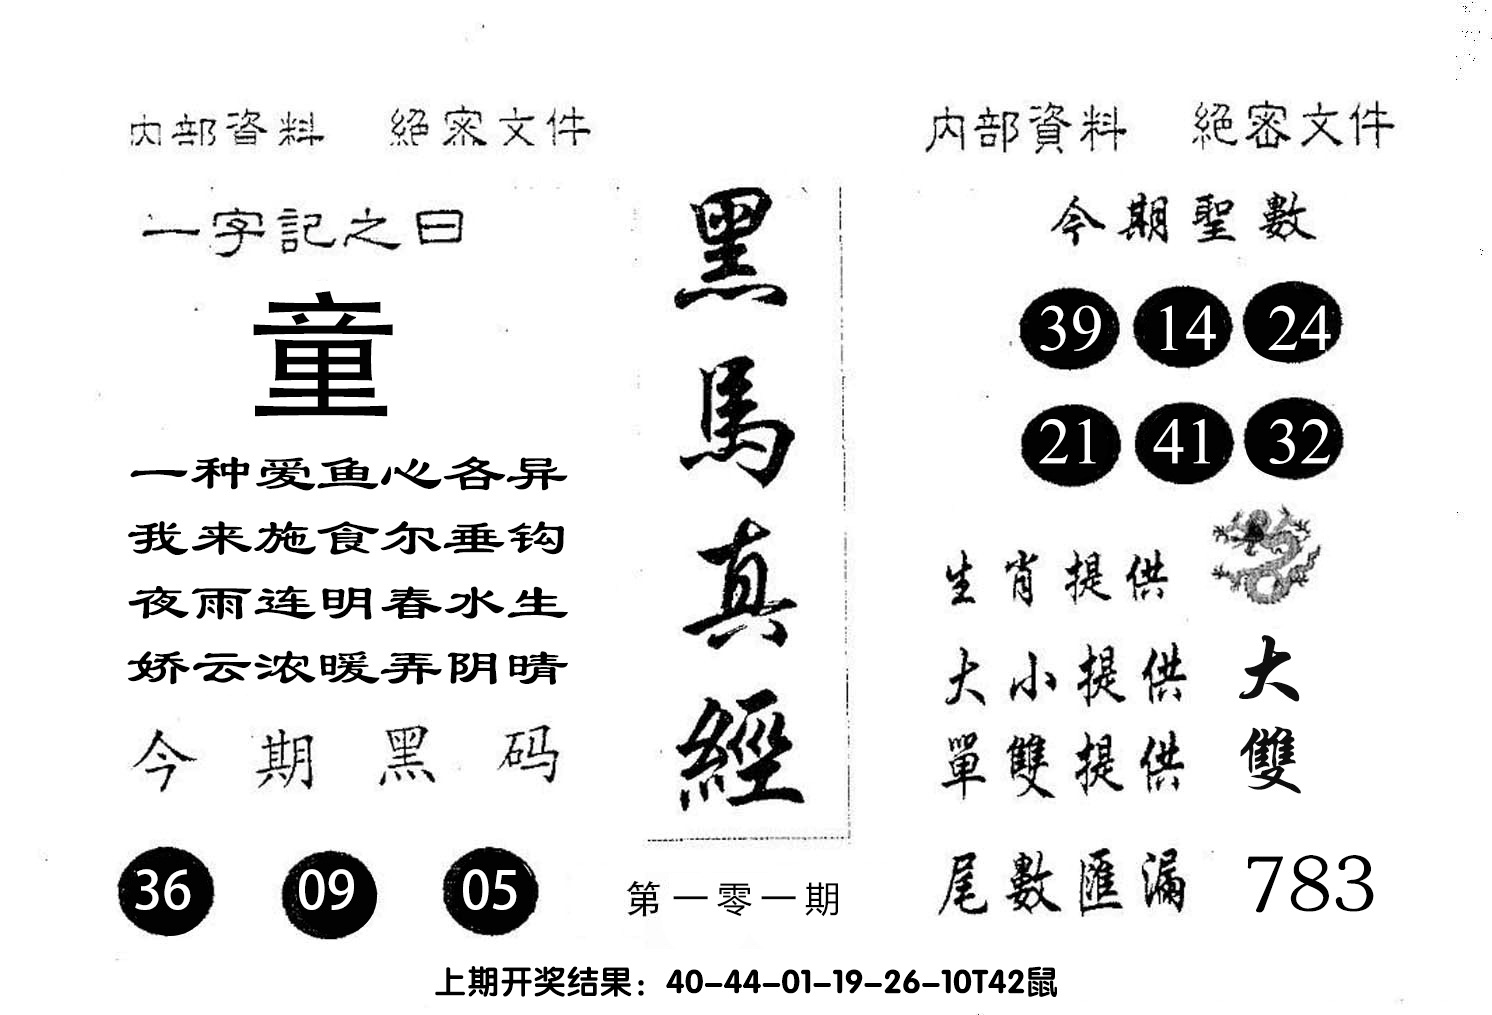 内部資料 絕密文件
一字記之曰
童
一种爱鱼心各异
我来施食尔垂钩
夜雨连明春水生
娇云浓暖弄阴晴
今期黑码
36 09 05
黑馬真經
第一零一期
内部資料 絕密文件
今期聖數
39 14 24
21 41 32
生肖提供
大小提供 大
單雙提供 雙
尾數匯漏 783
上期开奖结果：40-44-01-19-26-10T42鼠